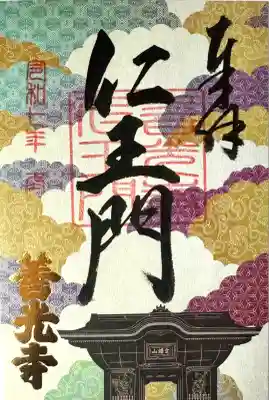 奉拝
仁王門
令和七年
善光寺
定額山